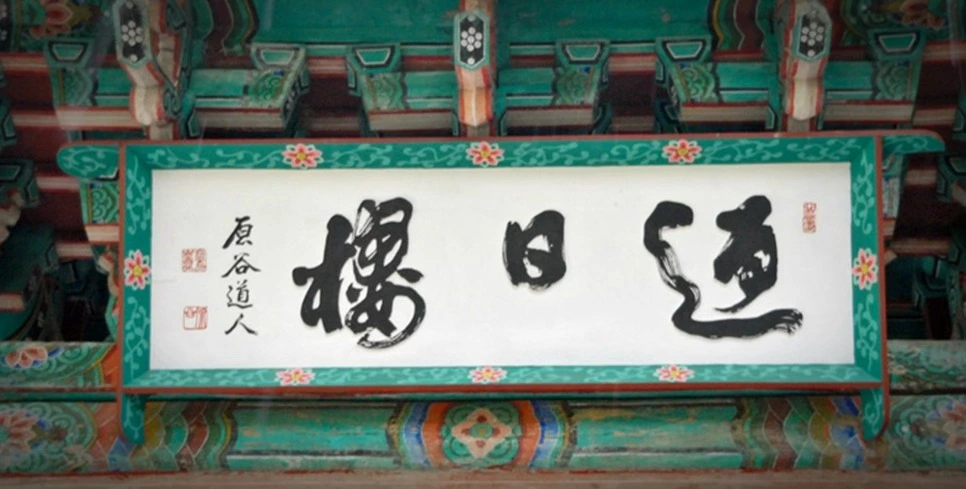 日樓
原谷道人